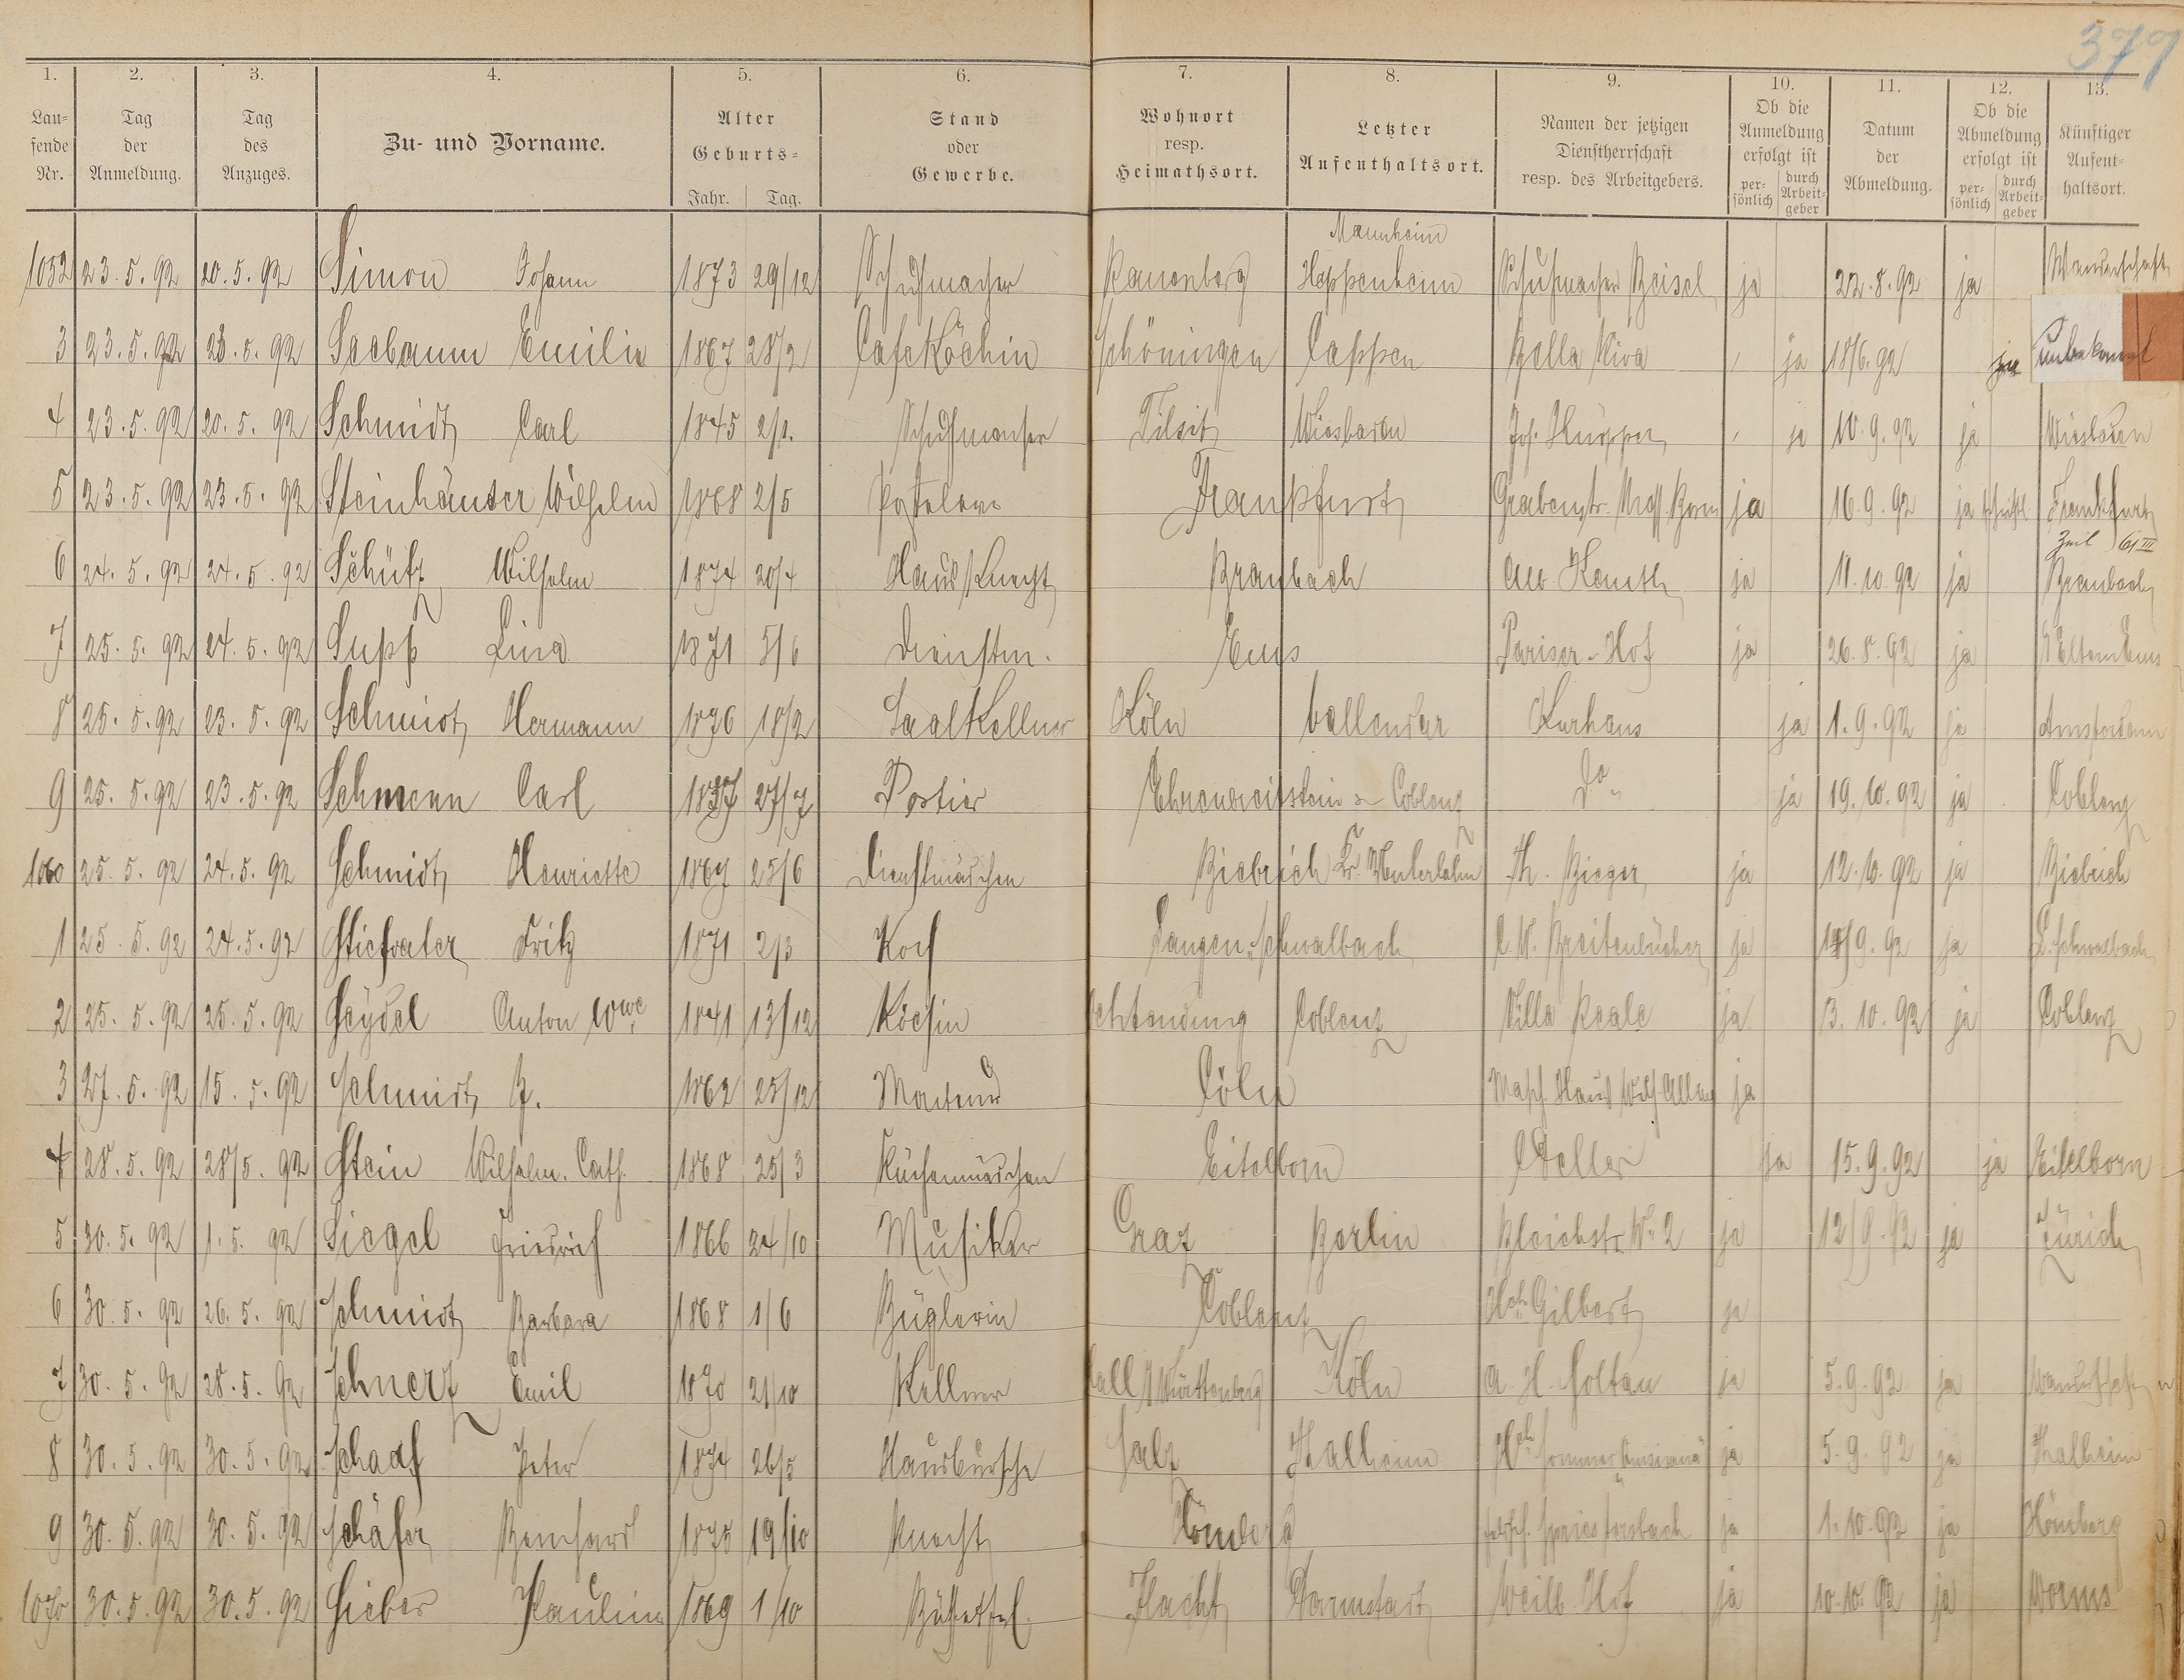 377
1. 2. 3. 4. 5. 6. 7. 8. 9. 10. 11. 12. 13.
Lau-fende Nr. | Tag der Anmeldung. | Tag des Anzuges. | Zu- und Vorname. | Alter Geburts- Jahr. Tag. | Stand oder Gewerbe. | Wohnort resp. Heimathsort. | Letzter Aufenthaltsort. | Namen der jetzigen Dienstherrschaft resp. des Arbeitgebers. | Ob die Anmeldung erfolgt ist per-sönlich durch Arbeit-geber | Datum der Abmeldung. | Ob die Abmeldung erfolgt ist per-sönlich durch Arbeit-geber | Künftiger Aufent-haltsort.
Mannheim
1052 23.5.92 20.5.92 Simon Johann 1873 29/12 Schuhmacher Rauenberg Heppenheim Schuhmacher Beisel ja 22.8.92 ja Wanderschaft
3 23.5.92 23.5.92 Seebaum Emilie 1867 28/2 Cafeköchin Schöningen Cappen Bella Riva - ja 18/6.92 ja unbekannt
4 23.5.92 20.5.92 Schmidt Carl 1845 Schuhmacher Tilsit Wiesbaden Jos. - ja 10.9.92 ja Wiesbaden
5 23.5.92 23.5.92 Steinhäuser Wilhelm 1868 2/5 Posteleve Frankfurt Grabenstr. ja 16.9.92 ja schriftl. Frankfurt
Zeil 61 III
6 24.5.92 24.5.92 Schütz Wilhelm 1874 20/4 Hausknecht Braubach ja 11.10.92 ja Braubach
7 25.5.92 24.5.92 Supp Lina 1871 5/6 Dienstm. Ems Pariser-Hof ja 26.8.92 ja Eltern Ems
8 25.5.92 23.5.92 Schmidt Hermann 1876 18/2 Saalkellner Köln Vallendar Kurhaus ja 1.9.92 ja Amsterdam
9 25.5.92 23.5.92 Carl 27/7 Portier Ehrenbreitstein Coblenz do ja 19.10.92 ja Coblenz
1060 25.5.92 24.5.92 Schmidt Henriette 1867 25/6 Dienstmädchen Biebrich Kr. Unterlahn Th. Bieger ja 12.10.92 ja Biebrich
1 25.5.92 24.5.92 Stiefvater Fritz 1871 2/3 Koch Langen-Schwalbach C.W. Breitenbücher ja 9.92 ja L. Schwalbach
2 25.5.92 25.5.92 Seydel Anton Wwe 1841 13/12 Köchin Ochtendung Coblenz Villa Reale ja 3.10.92 ja Coblenz
3 27.5.92 15.5.92 Schmidt 1862 25/12 Cöln ja
4 28.5.92 28/5.92 Stein Wilhelm. Cath. 1868 25/3 Küchenmädchen Eitelborn ja 15.9.92 ja Eitelborn
5 30.5.92 1.5.92 Siegel Friedrich 1866 24/10 Musiker Graz Berlin Bleichstr. No 2 ja 12/9.92 ja Zürich
6 30.5.92 26.5.92 Schmidt Barbara 1868 1/6 Büglerin Coblenz Hch. Gilbert ja
7 30.5.92 28.5.92 Schnerz Emil 1870 21/10 Kellner Hall Württenberg Köln A. H. Holtau ja 5.9.92 ja Wanderschaft
8 30.5.92 30.5.92 Schaaf Peter 1874 26/5 Hausbursche Salz Thalheim Hch. Sommer ja 5.9.92 ja Thalheim
9 30.5.92 30.5.92 Schäfer Bernhard 1875 19/10 Knecht Hömberg ja 1.10.92 ja Hömberg
1070 30.5.92 30.5.92 Sieber Pauline 1869 1/10 Büffetfrl. Flacht Darmstadt Weilb. Hof ja 10.10.92 ja Worms